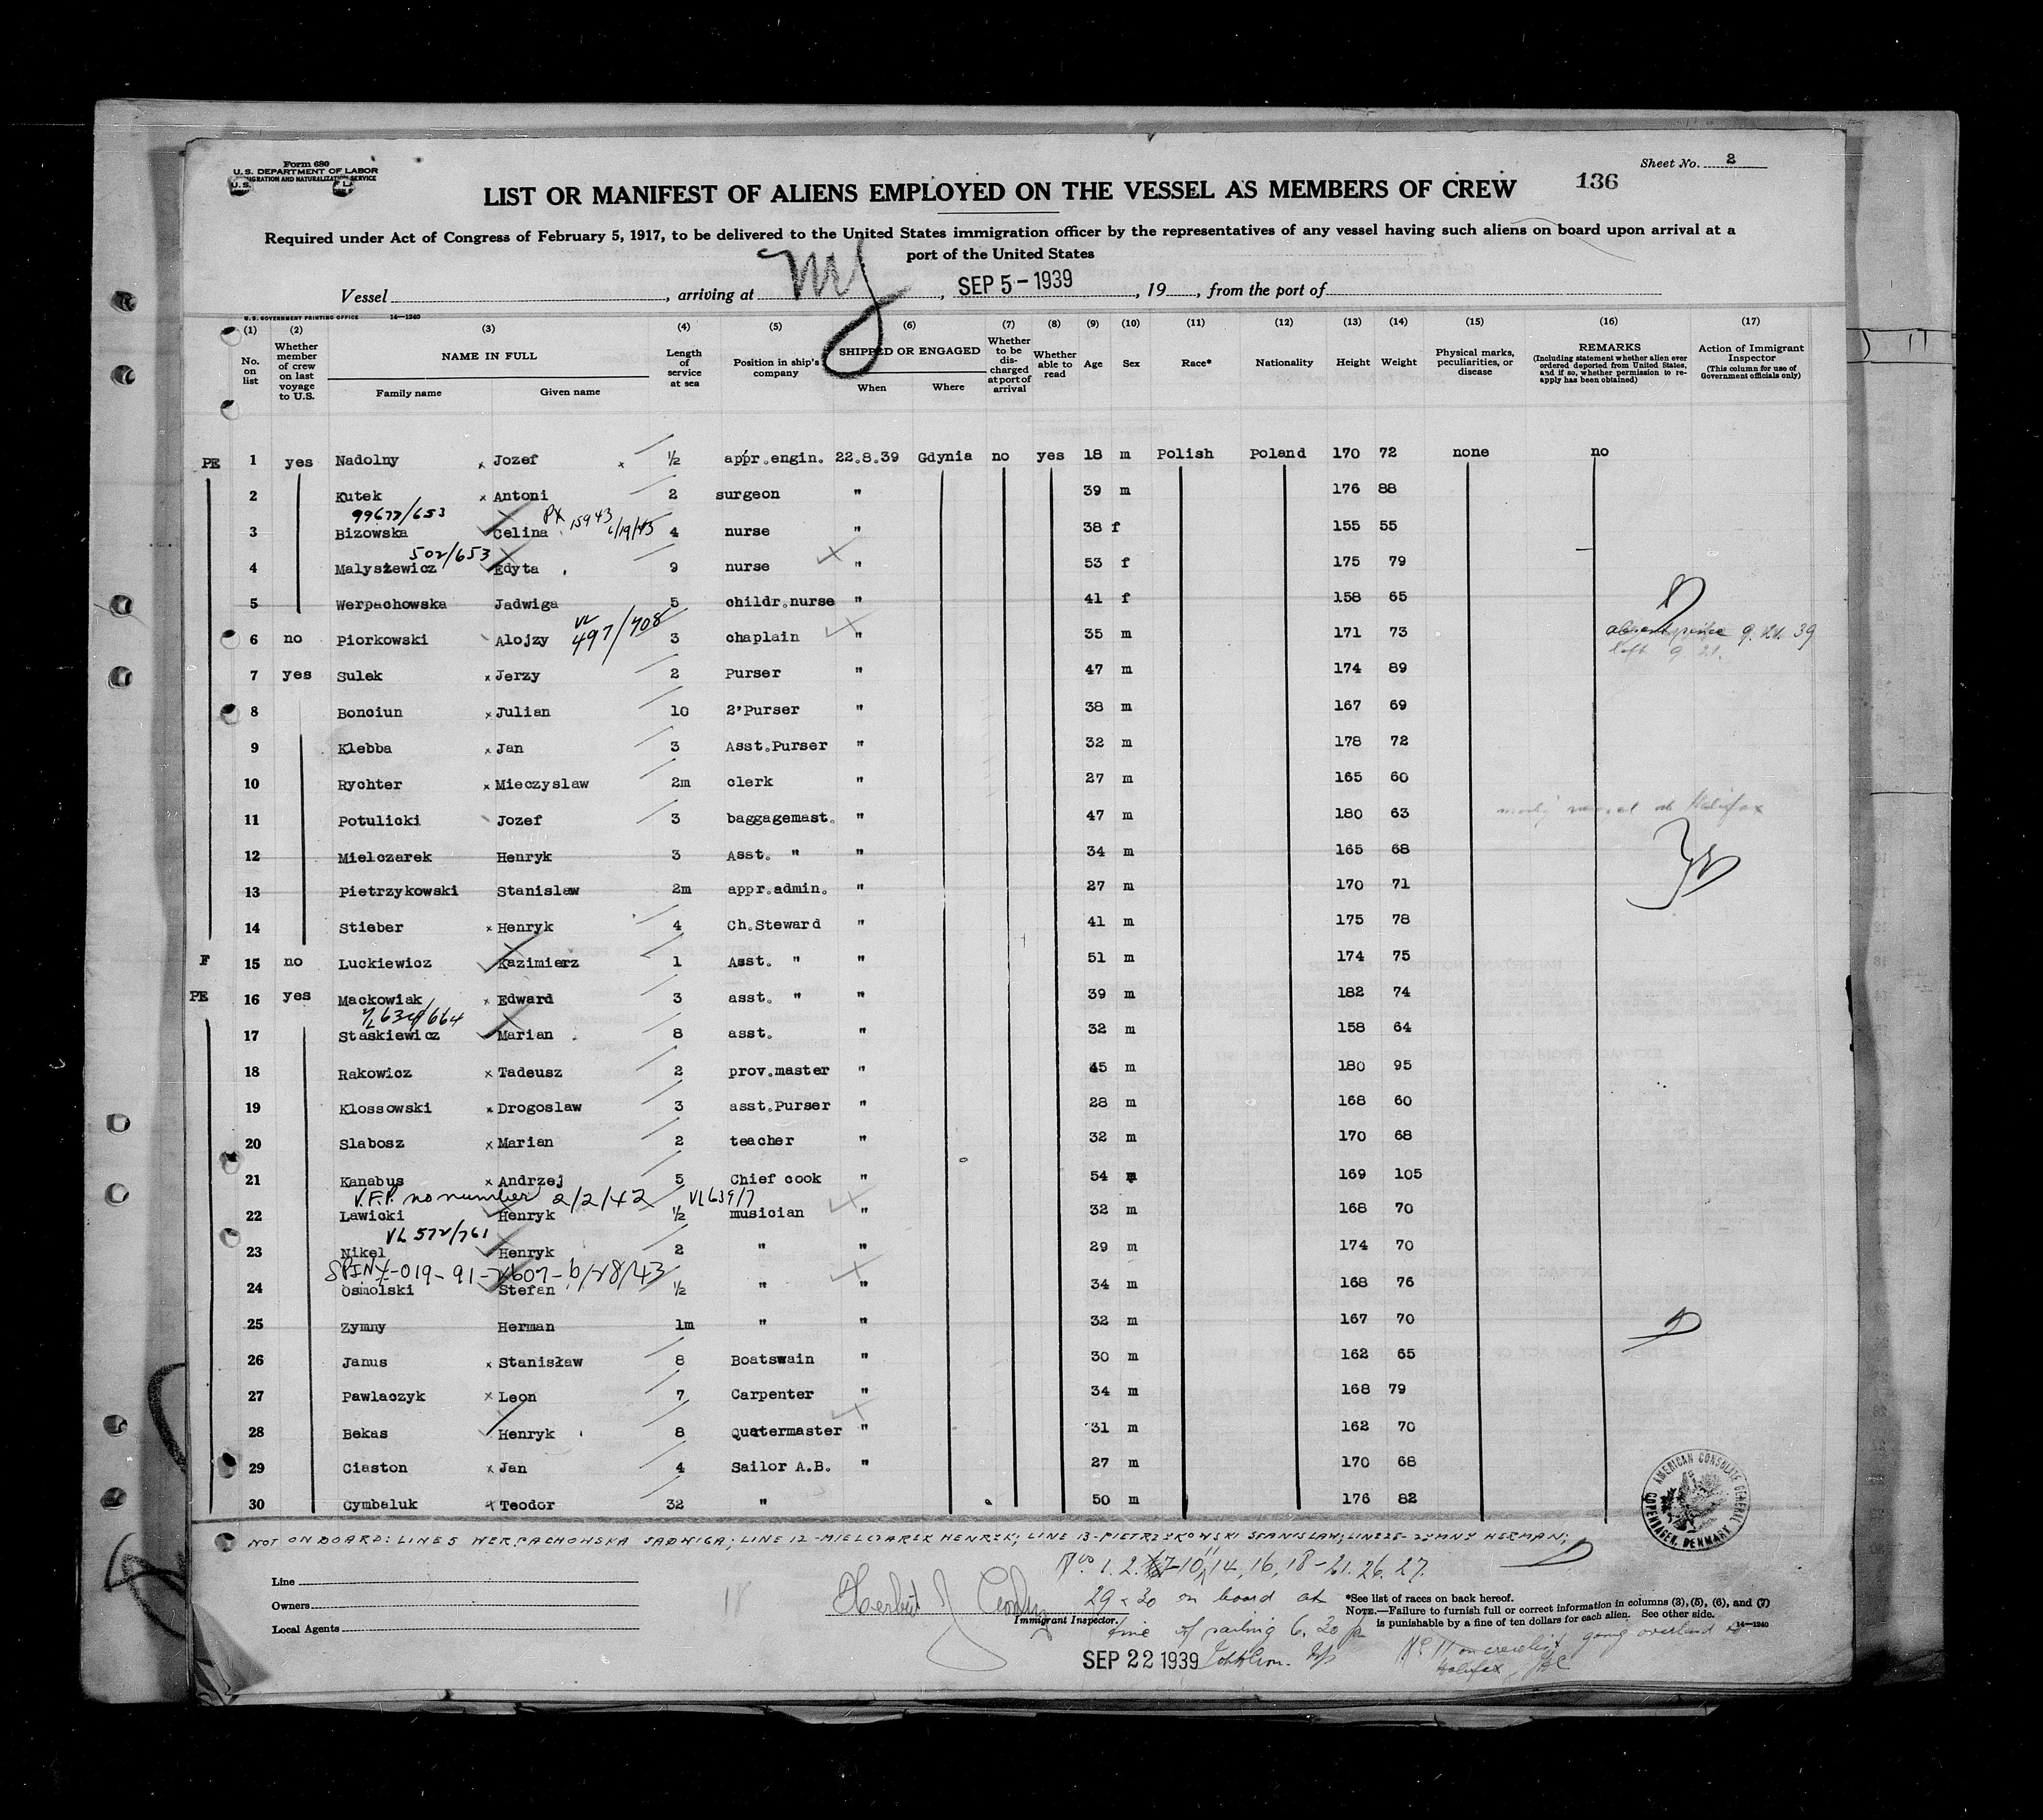 Form 680
U.S. DEPARTMENT OF LABOR
IMMIGRATION AND NATURALIZATION SERVICE
Sheet No. 2
136
LIST OR MANIFEST OF ALIENS EMPLOYED ON THE VESSEL AS MEMBERS OF CREW
Required under Act of Congress of February 5, 1917, to be delivered to the United States immigration officer by the representatives of any vessel having such aliens on board upon arrival at a
port of the United States
Vessel , arriving at NY , SEP 5 - 1939 , 19 , from the port of
U.S. GOVERNMENT PRINTING OFFICE 14—1240
(1) (2) (3) (4) (5) (6) (7) (8) (9) (10) (11) (12) (13) (14) (15) (16) (17)
No. on list
Whether member of crew on last voyage to U.S.
NAME IN FULL
Family name Given name
Length of service at sea
Position in ship's company
SHIPPED OR ENGAGED
When Where
Whether to be discharged at port of arrival
Whether able to read
Age
Sex
Race*
Nationality
Height
Weight
Physical marks, peculiarities, or disease
REMARKS
(Including statement whether alien ever ordered deported from United States, and if so, whether permission to reapply has been obtained)
Action of Immigrant Inspector
(This column for use of Government officials only)
PE 1 yes Nadolny x Jozef x ½ appr.engin. 22.8.39 Gdynia no yes 18 m Polish Poland 170 72 none no
2 Kutek x Antoni 2 surgeon " 39 m 176 88
99677/653
3 Bizowska Celina 4 nurse " 38 f 155 55
502/653
4 Malyszewicz Edyta 9 nurse " 53 f 175 79
5 Werpachowska Jadwiga 5 childr.nurse " 41 f 158 65
VL 497/708
6 no Piorkowski Alojzy 3 chaplain " 35 m 171 73
7 yes Sulek x Jerzy 2 Purser " 47 m 174 89
8 Bonciun x Julian 10 2'Purser " 38 m 167 69
9 Klebba x Jan 3 Asst.Purser " 32 m 178 72
10 Rychter x Mieczyslaw 2m clerk " 27 m 165 60
11 Potulicki Jozef 3 baggagemast. " 47 m 180 63
12 Mielczarek Henryk 3 Asst. " " 34 m 165 68
13 Pietrzykowski Stanislaw 2m appr.admin. " 27 m 170 71
14 Stieber x Henryk 4 Ch.Steward " 41 m 175 78
F 15 no Luckiewicz Kazimierz 1 Asst. " " 51 m 174 75
PE 16 yes Mackowiak x Edward 3 asst. " " 39 m 182 74
17 Staskiewicz Marian 8 asst. " 32 m 158 64
18 Rakowicz x Tadeusz 2 prov.master " 45 m 180 95
19 Klossowski x Drogoslaw 3 asst.Purser " 28 m 168 60
20 Slabosz x Marian 2 teacher " 32 m 170 68
21 Kanabus x Andrzej 5 Chief cook " 54 m 169 105
V.F.P. no number 2/2/42 VL639/7
22 Lawicki Henryk ½ musician " 32 m 168 70
VL 572/761
23 Nikel Henryk 2 " " 29 m 174 70
24 Osmolski Stefan ½ " " 34 m 168 76
25 Zymny Herman 1m " " 32 m 167 70
26 Janus x Stanisław 8 Boatswain " 30 m 162 65
27 Pawlaczyk x Leon 7 Carpenter " 34 m 168 79
28 Bekas Henryk 8 Quatermaster " 31 m 162 70
29 Ciaston x Jan 4 Sailor A.B. " 27 m 170 68
30 Cymbaluk x Teodor 32 " 50 m 176 82
AMERICAN CONSULATE GENERAL COPENHAGEN, DENMARK
NOT ON BOARD: LINE 5 WERPACHOWSKA JADWIGA; LINE 12-MIELCZAREK HENRYK; LINE 13-PIETRZYKOWSKI STANISLAW; LINE 25-ZYMNY HERMAN;
14, 16, 18-21. 26. 27.
29 - 30 on board at
time of sailing 6.30 p
Line
Owners
Local Agents
18
Immigrant Inspector.
SEP 22 1939
*See list of races on back hereof.
NOTE.—Failure to furnish full or correct information in columns (3), (5), (6), and (7)
is punishable by a fine of ten dollars for each alien. See other side.
14—1240
No 11 on crewlist going overland to
Halifax